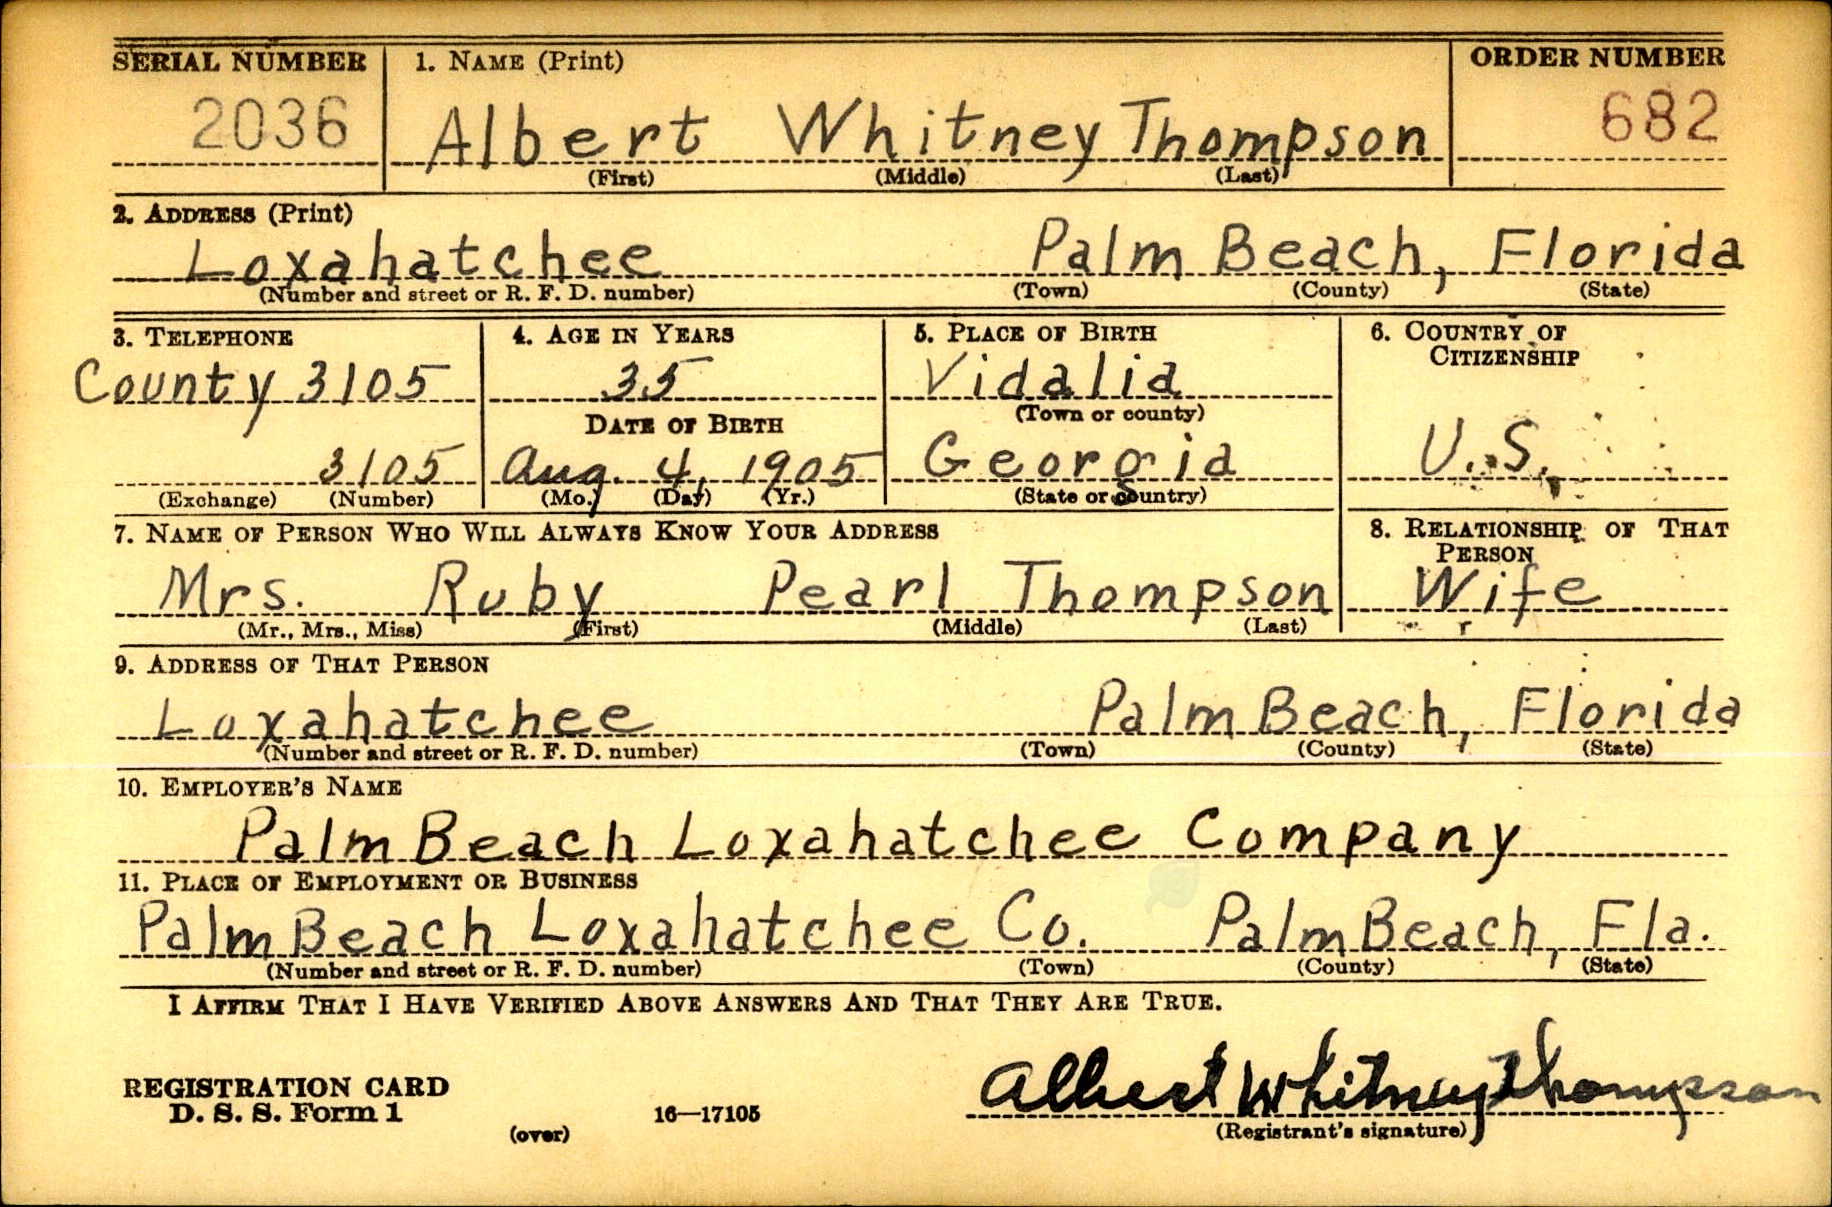 SERIAL NUMBER 1. NAME (Print) ORDER NUMBER
2036 Albert Whitney Thompson 682
(First) (Middle) (Last)
2. ADDRESS (Print)
Loxahatchee Palm Beach, Florida
(Number and street or R. F. D. number) (Town) (County) (State)
3. TELEPHONE 4. AGE IN YEARS 5. PLACE OF BIRTH 6. COUNTRY OF
CITIZENSHIP
County 3105 35 Vidalia
(Town or county)
DATE OF BIRTH
3105 Aug. 4, 1905 Georgia U.S.
(Exchange) (Number) (Mo.) (Day) (Yr.) (State or country)
7. NAME OF PERSON WHO WILL ALWAYS KNOW YOUR ADDRESS 8. RELATIONSHIP OF THAT
PERSON
Mrs. Ruby Pearl Thompson Wife
(Mr., Mrs., Miss) (First) (Middle) (Last)
9. ADDRESS OF THAT PERSON
Loxahatchee Palm Beach, Florida
(Number and street or R. F. D. number) (Town) (County) (State)
10. EMPLOYER'S NAME
Palm Beach Loxahatchee Company
11. PLACE OF EMPLOYMENT OR BUSINESS
Palm Beach Loxahatchee Co. Palm Beach, Fla.
(Number and street or R. F. D. number) (Town) (County) (State)
I AFFIRM THAT I HAVE VERIFIED ABOVE ANSWERS AND THAT THEY ARE TRUE.
Albert Whitney Thompson
REGISTRATION CARD
D. S. S. Form 1 16—17105
(over) (Registrant's signature)